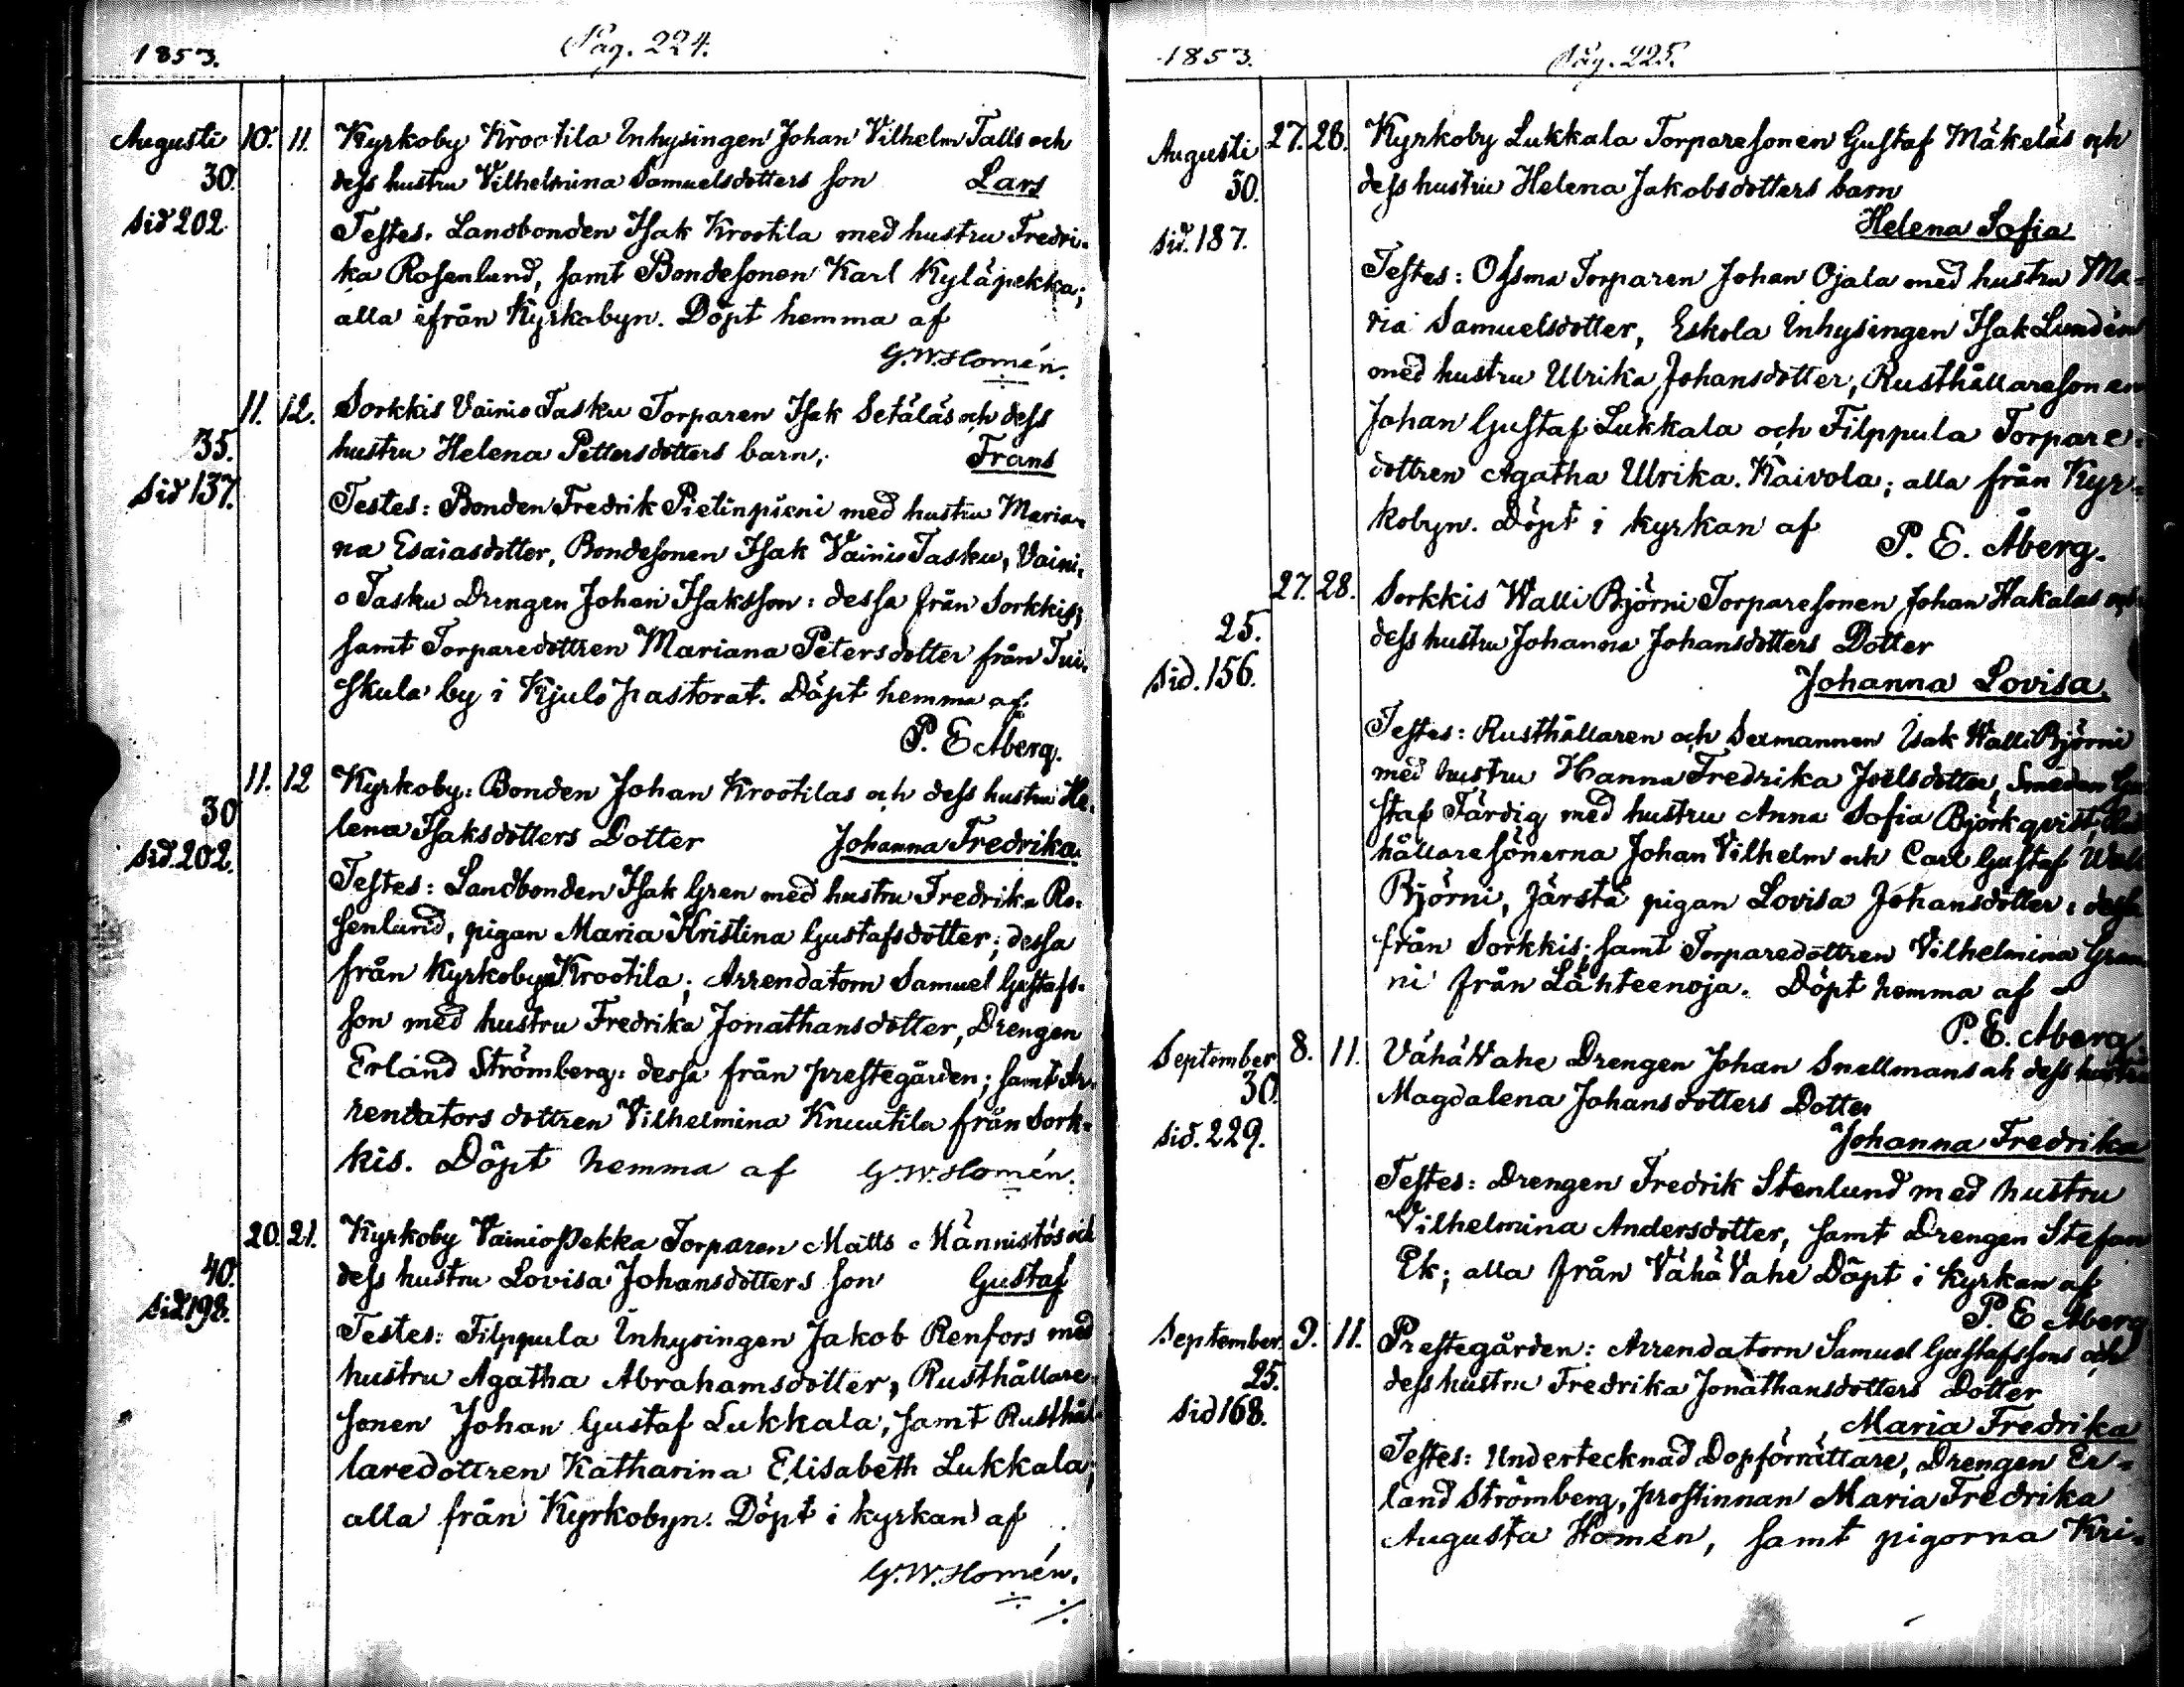 1853.
Pag. 224.
Augusti 10. 11. Kyrkoby Krootila Inhysingen Johan Vilhelm Talls och
30. dess hustru Vilhelmina Samuelsdotters son Lars
Sid 202. Testes. Landbonden Isak Krootila med hustru Fredri-
ka Rosenlund, samt Bondesonen Karl Kyläpekka;
alla ifrån Kyrkobyn. Döpt hemma af
G.W. Homén.
11. 12. Sorkkis Vainio Tasku Torparen Isak Setäläs och dess
35. hustru Helena Pettersdotters barn; Frans
Sid 137. Testes: Bonden Fredrik Pietinpieni med hustru Maria-
na Esaiasdotter, Bondesonen Isak Vainio Tasku, Vaini-
o Tasku Drengen Johan Isaksson: dessa från Sorkkis;
samt Torparedottren Mariana Petersdotter från Tui-
skula by i Kjulo pastorat. Döpt hemma af
P. E Åberg.
11. 12 Kyrkoby: Bonden Johan Krootilas och dess hustru He-
30 lena Isaksdotters Dotter Johanna Fredrika.
Sid. 202. Testes: Landbonden Isak Gren med hustru Fredrika Ro-
senlund, pigan Maria Kristina Gustafsdotter; dessa
från Kyrkoby Krootila; Arrendatorn Samuel Gustafs-
son med hustru Fredrika Jonathansdotter, Drengen
Erland Strömberg: dessa från prestegården; samt Ar-
rendators dottren Vilhelmina Knuutila från Sork-
kis. Döpt hemma af G.W. Homén.
20. 21. Kyrkoby Vainio Pekka Torparen Matts Männistös och
40. dess hustru Lovisa Johansdotters son Gustaf
Sid 198. Testes: Filppula Inhysingen Jakob Renfors med
hustru Agatha Abrahamsdotter, Rusthållare-
sonen Johan Gustaf Lukkala, samt Rusthål-
laredottren Katharina Elisabeth Lukkala;
alla från Kyrkobyn. Döpt i kyrkan af
G.W. Homén.
1853.
Pag. 225.
Augusti 27. 28. Kyrkoby Lukkala Torparesonen Gustaf Mäkeläs och
30. dess hustru Helena Jakobsdotters barn
Helena Sofia
Sid. 187. Testes: Ossma Torparen Johan Ojala med hustru Ma-
ria Samuelsdotter, Eskola Inhysingen Isak Lundén
med hustru Ulrika Johansdotter, Rusthållaresonen
Johan Gustaf Lukkala och Filppula Torpare-
dottren Agatha Ulrika Kaivola; alla från Kyr-
kobyn. Döpt i kyrkan af P. E. Åberg.
27. 28. Sorkkis Walli Björni Torparesonen Johan Hakalas och
25. dess hustru Johanna Johansdotters Dotter
Sid. 156. Johanna Lovisa.
Testes: Rusthållaren och Sexmannen Isak Walli Björni
med hustru Hanna Fredrika Joëlsdotter, Smeden Gu-
staf Färdig med hustru Anna Sofia Björkqvist,
hållaresönerna Johan Vilhelm och Carl Gustaf Walli
Björni, Järstä pigan Lovisa Johansdotter: dessa
från Sorkkis; samt Torparedottren Vilhelmina
ni från Lähteenoja. Döpt hemma af
P. E. Åberg
September 8. 11. Vähä Vahe Drengen Johan Snellmans och dess hustru
30. Magdalena Johansdotters Dotter
Sid. 229. Johanna Fredrika
Testes: Drengen Fredrik Stenlund med hustru
Vilhelmina Andersdotter, samt Drengen Stefan
Ek; alla från Vähä Vahe Döpt i kyrkan af
P. E Åberg
September 9. 11. Prestegården: Arrendatorn Samuel Gustafssons och
25. dess hustru Fredrika Jonathansdotters Dotter
Sid 168. Maria Fredrika
Testes: Undertecknad Dopförrättare, Drengen Er-
land Strömberg, prostinnan Maria Fredrika
Augusta Homén, samt pigorna Kri-